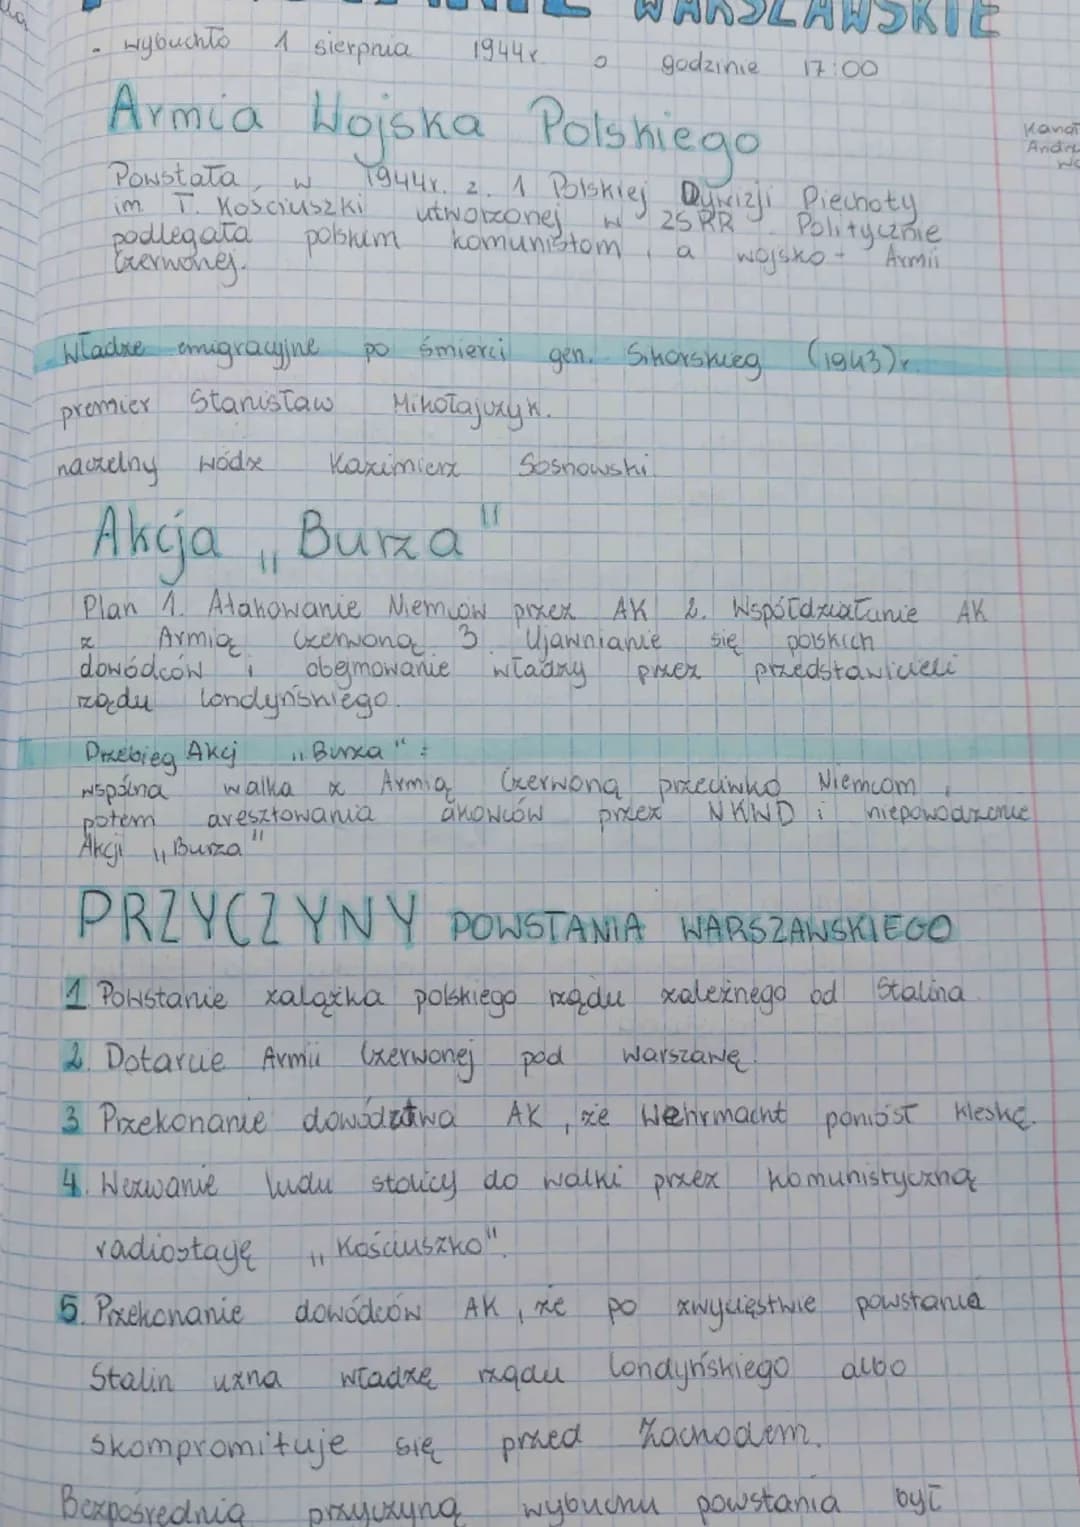 WARSZAWSKIE
- wybuchło 1 sierpnia 1944r. o godzinie 17:00
Armia Wojska Polskiego
Powstała w 1944r. z 1 Polskiej Dywizji Piechoty
im. T. Kościuszki utworzonej w ZSRR. Politycznie
podlegała polskim komunistom, a wojsko - Armii
Czerwonej.
Władze emigracyjne po śmierci gen. Sikorskieg (1943)r.
premier Stanisław Mikołajczyk.
naczelny wódz Kazimierz Sosnowski.
Akcja „Burza"
Plan 1. Atakowanie Niemców przez AK 2. Współdziałanie AK
z Armią Czerwoną 3. Ujawnianie się polskich
dowódców i obejmowanie władzy przez przedstawicieli
rządu londyńskiego.
Przebieg Akcj „Burza":
wspólna walka z Armią Czerwoną przeciwko Niemcom,
potem aresztowania akowców przez NKWD i niepowodzenie
Akcji „Burza"
PRZYCZYNY POWSTANIA WARSZAWSKIEGO
1 Powstanie zalążka polskiego rządu zależnego od Stalina.
2. Dotarcie Armii Czerwonej pod Warszawę.
3 Przekonanie dowództwa AK, że Wehrmacht poniósł klęskę.
4. Wezwanie ludu stolicy do walki przez komunistyczną
radiostację „Kościuszko".
5. Przekonanie dowódców AK, że po zwycięstwie powstania
Stalin uzna władzę rządu londyńskiego albo
skompromituje się przed Zachodem.
Bezpośrednią przyczyną wybuchu powstania był